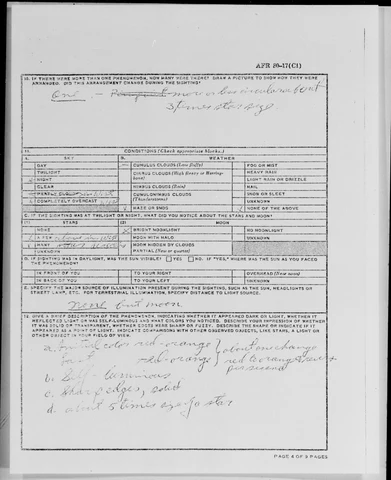 AFR 80-17(C1)
10. IF THERE WERE MORE THAN ONE PHENOMENON, HOW MANY WERE THERE? DRAW A PICTURE TO SHOW HOW THEY WERE
ARRANGED. DID THIS ARRANGEMENT CHANGE DURING THE SIGHTING?
One - more or less circular but
3 times star size
11. CONDITIONS (Check appropriate blocks.)
A. SKY B. WEATHER
DAY CUMULUS CLOUDS (Low fluffy) FOG OR MIST
TWILIGHT CIRRUS CLOUDS (High fleecy or Herringbone) HEAVY RAIN
NIGHT LIGHT RAIN OR DRIZZLE
CLEAR NIMBUS CLOUDS (Rain) HAIL
PARTLY CLOUDY CUMULONIMBUS CLOUDS SNOW OR SLEET
COMPLETELY OVERCAST (Thunderstorms) UNKNOWN
HAZE OR SMOG NONE OF THE ABOVE
C. IF THE SIGHTING WAS AT TWILIGHT OR NIGHT, WHAT DID YOU NOTICE ABOUT THE STARS AND MOON?
(1) STARS (2) MOON
NONE BRIGHT MOONLIGHT NO MOONLIGHT
A FEW MOON WITH HALO UNKNOWN
MANY MOON HIDDEN BY CLOUDS
UNKNOWN PARTIAL (New or quarter)
D. IF SIGHTING WAS IN DAYLIGHT, WAS THE SUN VISIBLE? YES NO. IF "YES," WHERE WAS THE SUN AS YOU FACED
THE PHENOMENON?
IN FRONT OF YOU TO YOUR RIGHT OVERHEAD (Near noon)
IN BACK OF YOU TO YOUR LEFT UNKNOWN
E. SPECIFY THE MAJOR SOURCE OF ILLUMINATION PRESENT DURING THE SIGHTING, SUCH AS THE SUN, HEADLIGHTS OR
STREET LAMP, ETC. FOR TERRESTRIAL ILLUMINATION, SPECIFY DISTANCE TO LIGHT SOURCE.
None but moon
12. GIVE A BRIEF DESCRIPTION OF THE PHENOMENON, INDICATING WHETHER IT APPEARED DARK OR LIGHT, WHETHER
IT REFLECTED LIGHT OR WAS SELF-LUMINOUS AND WHAT COLORS YOU NOTICED. DESCRIBE YOUR IMPRESSION OF WHETHER
IT WAS SOLID OR TRANSPARENT, WHETHER EDGES WERE SHARP OR FUZZY. DESCRIBE THE SHAPE OR INDICATE IF IT
APPEARED AS A POINT OF LIGHT. INDICATE COMPARISONS WITH OTHER OBSERVED OBJECTS, LIKE STARS, A LIGHT OR
OTHER OBJECT IN YOUR FIELD OF VIEW.
a. color red-orange about one change
red-orange red to orange
per second
b. Self-luminous
c. Sharp edges, solid
d. about 3 times size of a star
PAGE 4 OF 5 PAGES